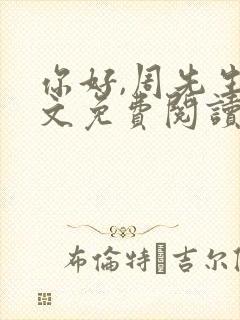 你好,周先生
文免費閱讀
布倫特 吉尔